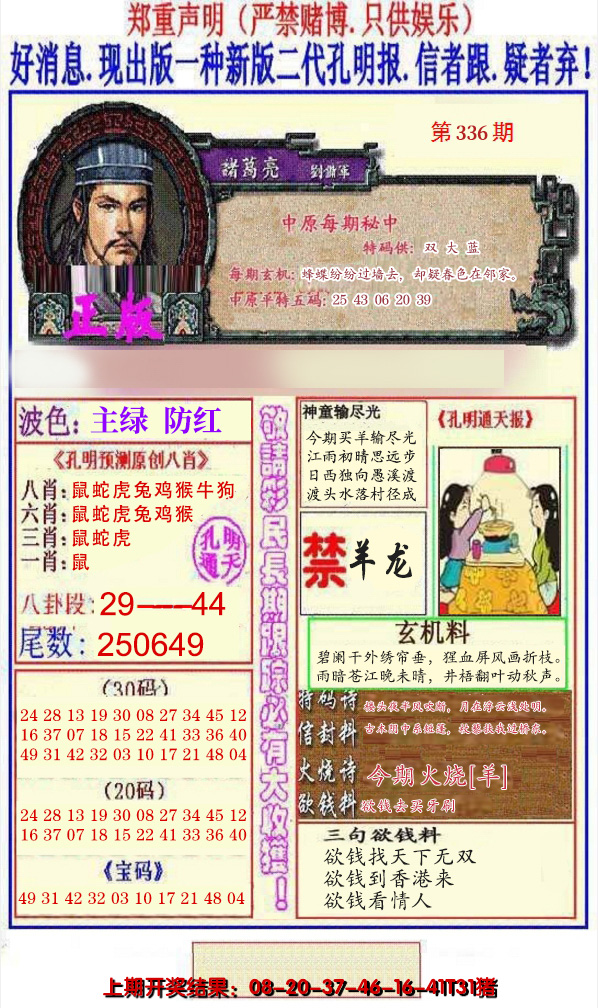 郑重声明（严禁赌博.只供娱乐）
好消息.现出版一种新版二代孔明报.信者跟.疑者弃！
第336期
諸葛亮 劉備軍
中原每期秘中
特码供：双大蓝
每期玄机：蜂蝶纷纷过墙去，却疑春色在邻家。
中原平特五码：25 43 06 20 39
正版
波色：主绿 防红
《孔明预测原创八肖》
八肖：鼠蛇虎兔鸡猴牛狗
六肖：鼠蛇虎兔鸡猴
三肖：鼠蛇虎
一肖：鼠
孔明通天
八卦段：29——44
尾数：250649
（30码）
24 28 13 19 30 08 27 34 45 12
16 37 07 18 15 22 41 33 36 40
49 31 42 32 03 10 17 21 48 04
（20码）
24 28 13 19 30 08 27 34 45 12
16 37 07 18 15 22 41 33 36 40
《宝码》
49 31 42 32 03 10 17 21 48 04
敬請彩民長期跟踪必有大收獲！
神童输尽光
今期买羊输尽光
江雨初晴思远步
日西独向愚溪渡
渡头水落村径成
《孔明通天报》
禁羊龙
玄机料
碧阑干外绣帘垂，猩血屏风画折枝。
雨暗苍江晚未晴，井梧翻叶动秋声。
特码诗 楼头夜半风吹断，月在浮云浅处明。
信封料 古木阴中系短篷，杖藜扶我过桥东。
火烧诗 今期火烧[羊]
欲钱料 欲钱去买牙刷
三句欲钱料
欲钱找天下无双
欲钱到香港来
欲钱看情人
上期开奖结果：08-20-37-46-16-41T31猪